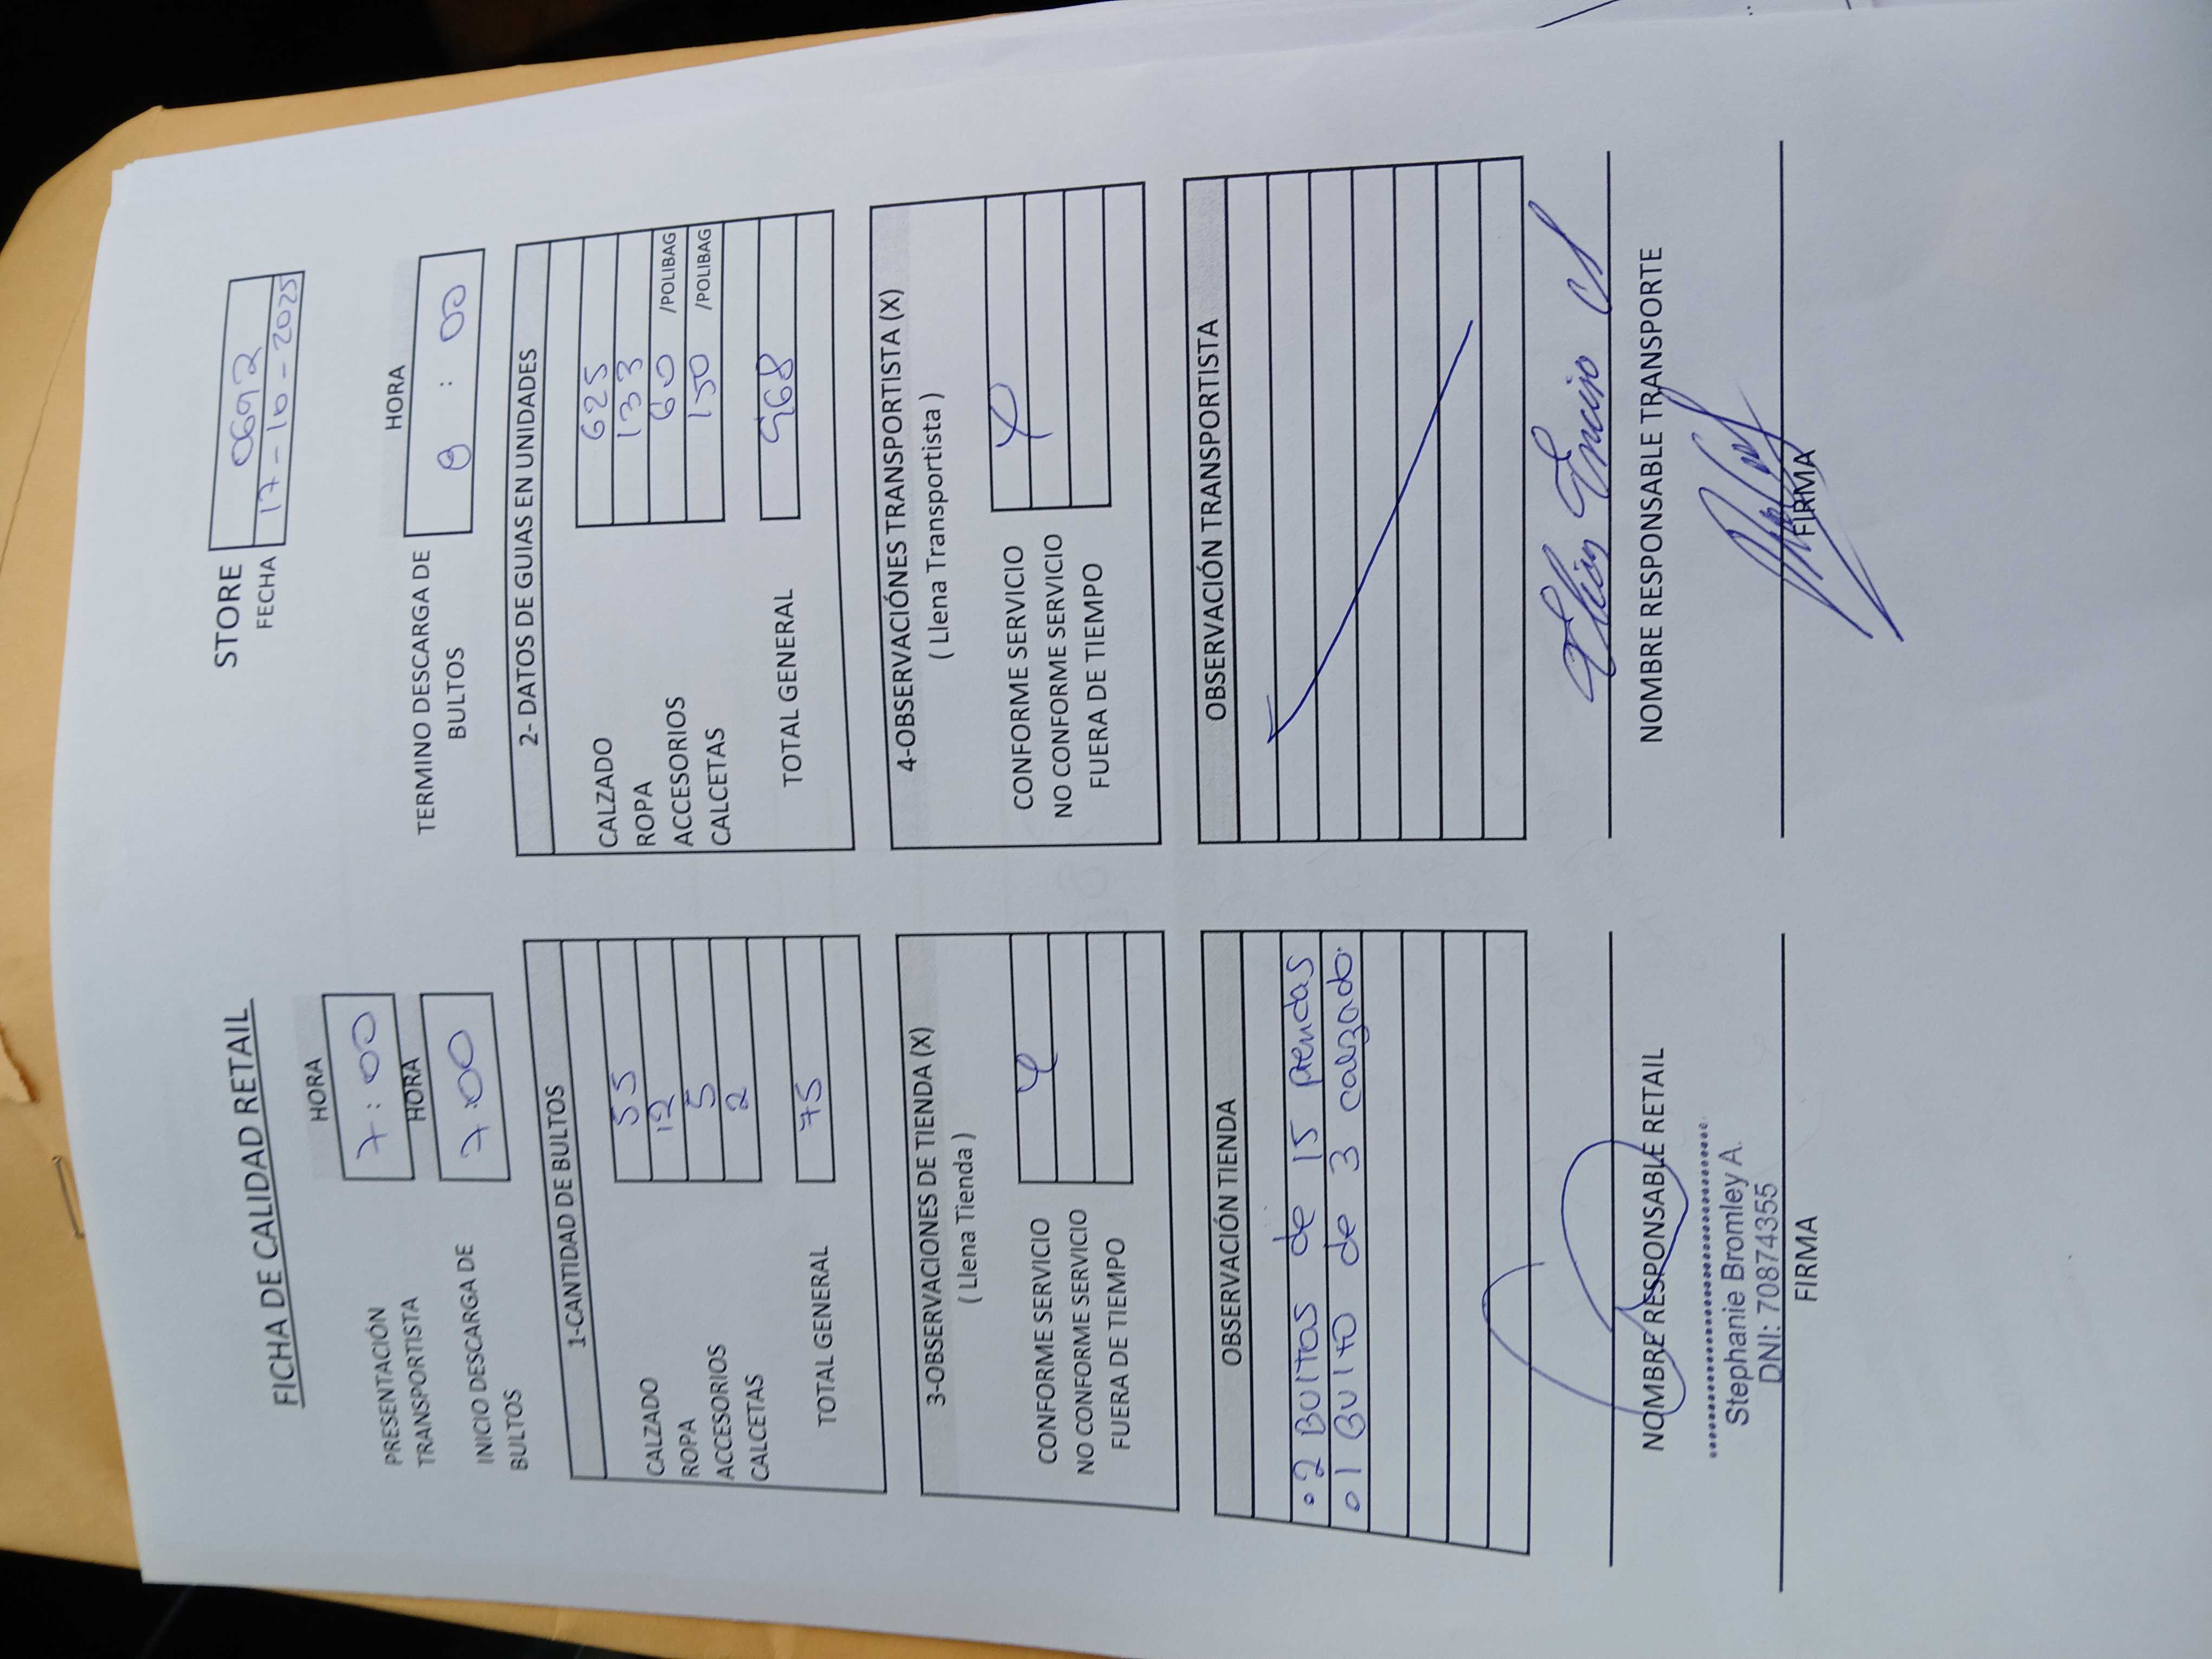 FICHA DE CALIDAD RETAIL
STORE 0692
FECHA 17-10-2025
HORA
PRESENTACIÓN TRANSPORTISTA 7:00
HORA
INICIO DESCARGA DE BULTOS 7:00
HORA
TERMINO DESCARGA DE BULTOS 8:00
1-CANTIDAD DE BULTOS
CALZADO 55
ROPA 12
ACCESORIOS 5
CALCETAS 2
TOTAL GENERAL 75
2- DATOS DE GUIAS EN UNIDADES
CALZADO 625
ROPA 133
ACCESORIOS 60 /POLIBAG
CALCETAS 150 /POLIBAG
TOTAL GENERAL 968
3-OBSERVACIONES DE TIENDA (X)
( Llena Tienda )
CONFORME SERVICIO
NO CONFORME SERVICIO
FUERA DE TIEMPO
4-OBSERVACIÓNES TRANSPORTISTA (X)
( Llena Transportista )
CONFORME SERVICIO
NO CONFORME SERVICIO
FUERA DE TIEMPO
OBSERVACIÓN TIENDA
• 2 Bultos de 15 prendas
• 1 Bulto de 3 calzado.
OBSERVACIÓN TRANSPORTISTA
NOMBRE RESPONSABLE RETAIL
Stephanie Bromley A.
DNI: 70874355
FIRMA
NOMBRE RESPONSABLE TRANSPORTE
FIRMA